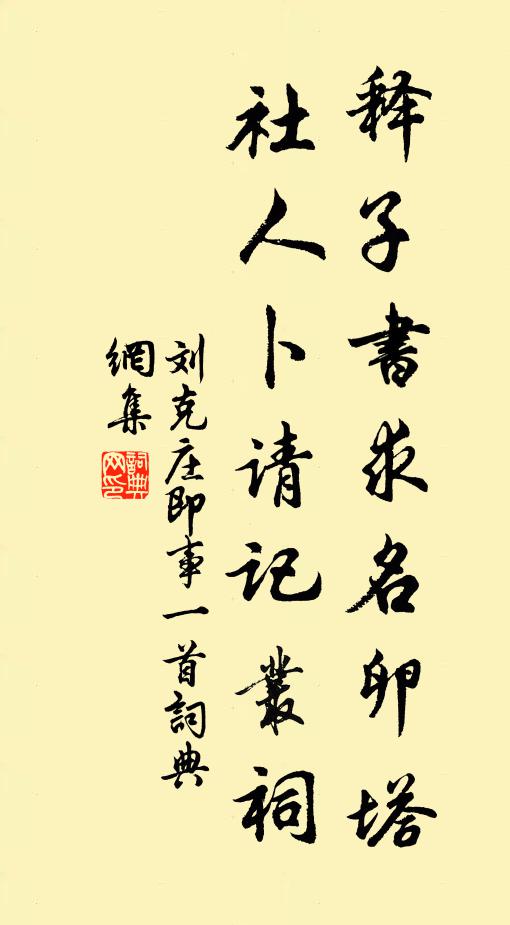 释子書求名卵塔
社人卜请记叢祠
刘克庄即事一首詞典
網集
詞典网印